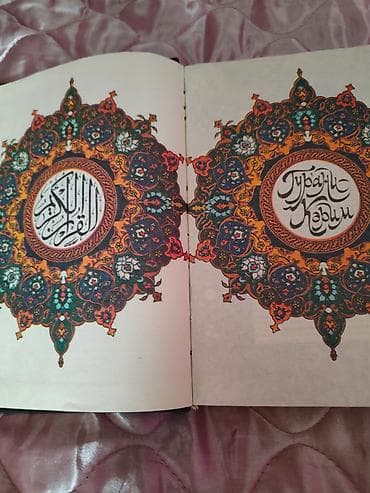 القرآن الكريم
Гур'ани-
Кәрим